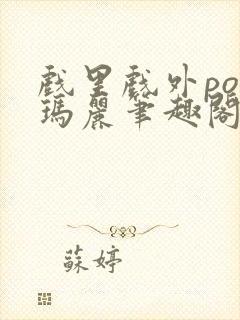 戲里戲外po
瑪麗筆趣閣
蘇婷